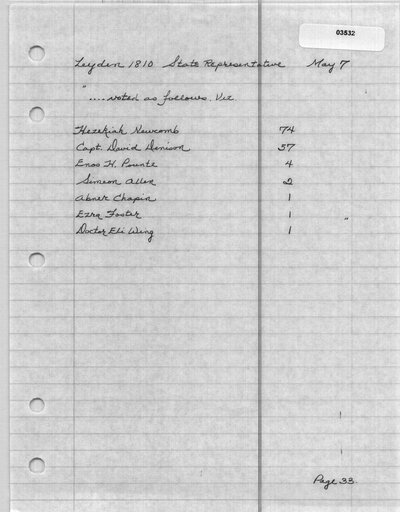 03532
Leyden 1810 State Representative May 7
"....voted as follows. Viz
Hezekiah Newcomb 74
Capt. David Denison 57
Enos H. 4
Simeon Allen 2
Abner Chapin 1
Ezra Foster 1 "
Doctor Eli Wing 1
Page 33.